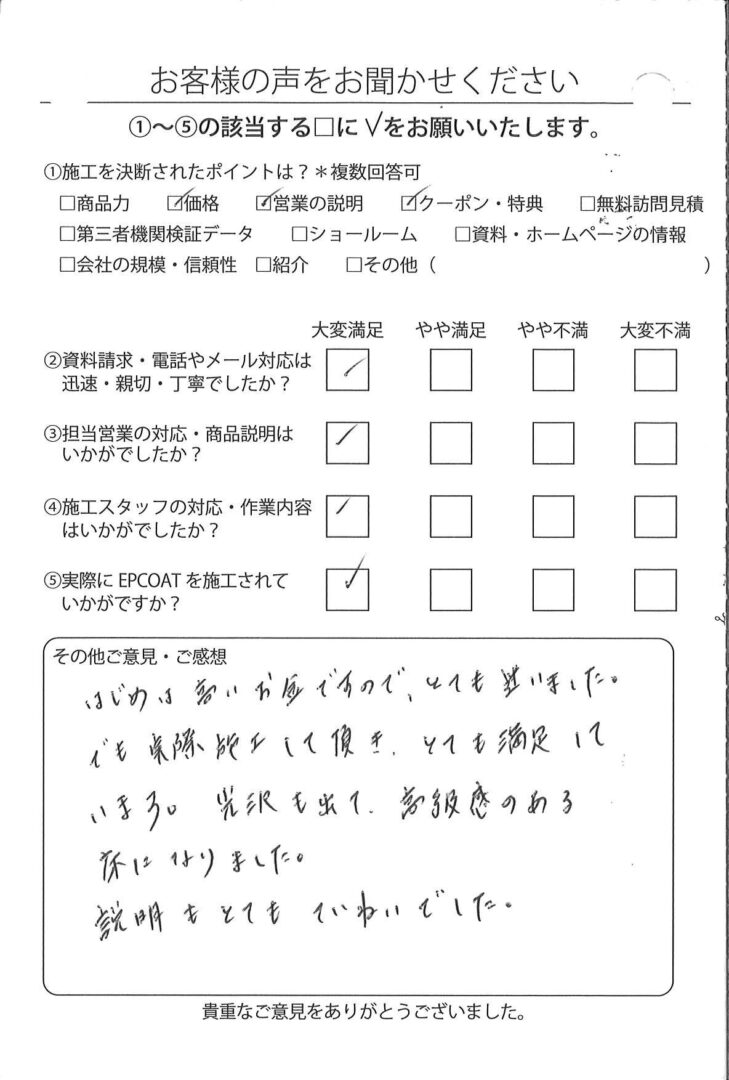 お客様の声をお聞かせください
①～⑤の該当する□に√をお願いいたします。
①施工を決断されたポイントは？＊複数回答可
□商品力 ☑価格 ☑営業の説明 ☑クーポン・特典 □無料訪問見積
□第三者機関検証データ □ショールーム □資料・ホームページの情報
□会社の規模・信頼性 □紹介 □その他（ ）
大変満足 やや満足 やや不満 大変不満
②資料請求・電話やメール対応は
迅速・親切・丁寧でしたか？
③担当営業の対応・商品説明は
いかがでしたか？
④施工スタッフの対応・作業内容
はいかがでしたか？
⑤実際に EPCOAT を施工されて
いかがですか？
その他ご意見・ご感想
はじめは高いお金ですので、とても迷いました。
でも実際施工して頂き、とても満足して
います。光沢も出て、高級感のある
床になりました。
説明もとてもていねいでした。
貴重なご意見をありがとうございました。